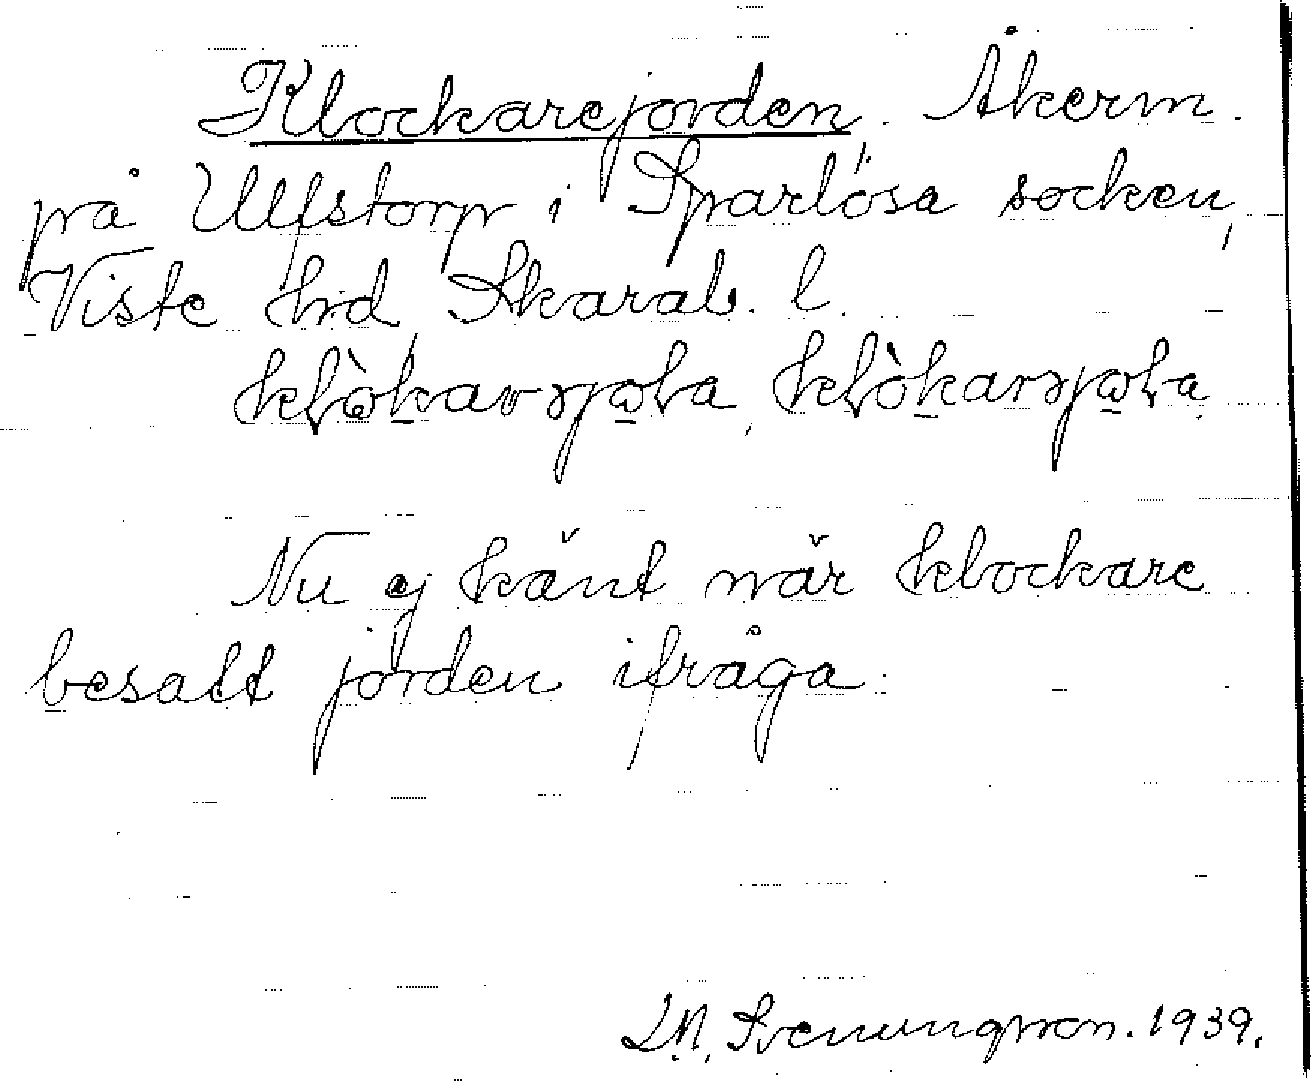 Klockarejorden. Åkerm.
på Ulfstorp i Sparlösa socken,
Viste hd, Skarab. l.
Nu ej känt när klockare
besatt jorden ifråga.
Svenungsson. 1939.